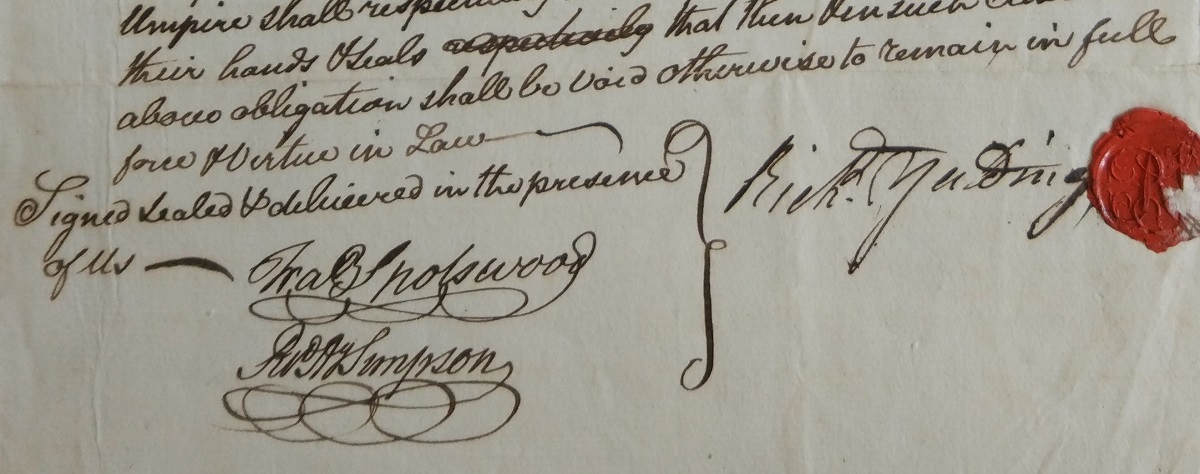 Umpire shall respectively
their hands & Seals respectively that then & in such
above obligation shall be void otherwise to remain in full
force & Virtue in Law
Signed sealed & delivered in the presence
of Us
Fra Spotswood
Simpson
Rich.d